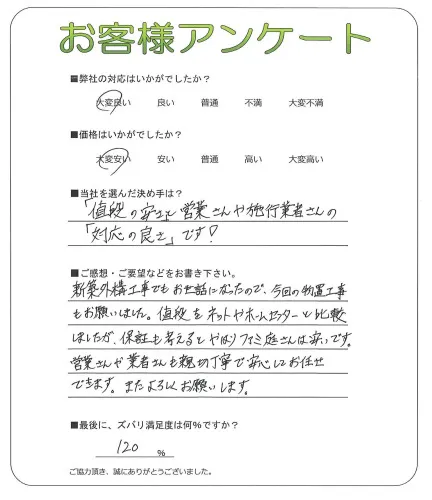 お客様アンケート
■弊社の対応はいかがでしたか?
大変良い 良い 普通 不満 大変不満
■価格はいかがでしたか?
大変安い 安い 普通 高い 大変高い
■当社を選んだ決め手は?
「値段の安さと営業さんや施行業者さんの
「対応の良さ」です!
■ご感想・ご要望などをお書き下さい。
新築外構工事でもお世話になったので、今回の物置工事
もお願いしました。値段をネットやホームセンターと比較
しましたが、保証も考えるとやはりファミ庭さんは安いです。
営業さんや業者さんも親切丁寧で安心してお任せ
できます。またよろしくお願いします。
■最後に、ズバリ満足度は何%ですか?
120 %
ご協力頂き、誠にありがとうございました。